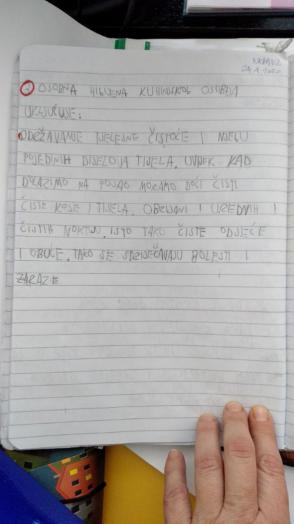 OSOBNA HIGIJENA KUHINJSKOG OSOBLJA
UKLJUČUJE:
ODRŽAVANJE TJELESNE ČISTOĆE I NJEGU
POJEDINIH DIJELOVA TIJELA. UVIJEK KAD
DOLAZIMO NA POSAO MORAMO DOĆI ČISTI
ČISTE KOSE I TIJELA, OBRIJANI I UREDNIH I
ČISTIH NOKTIJU, ISTO TAKO ČISTE ODJEĆE
I OBUĆE. TAKO SE SPRIJEČAVAJU BOLESTI I
ZARAZE